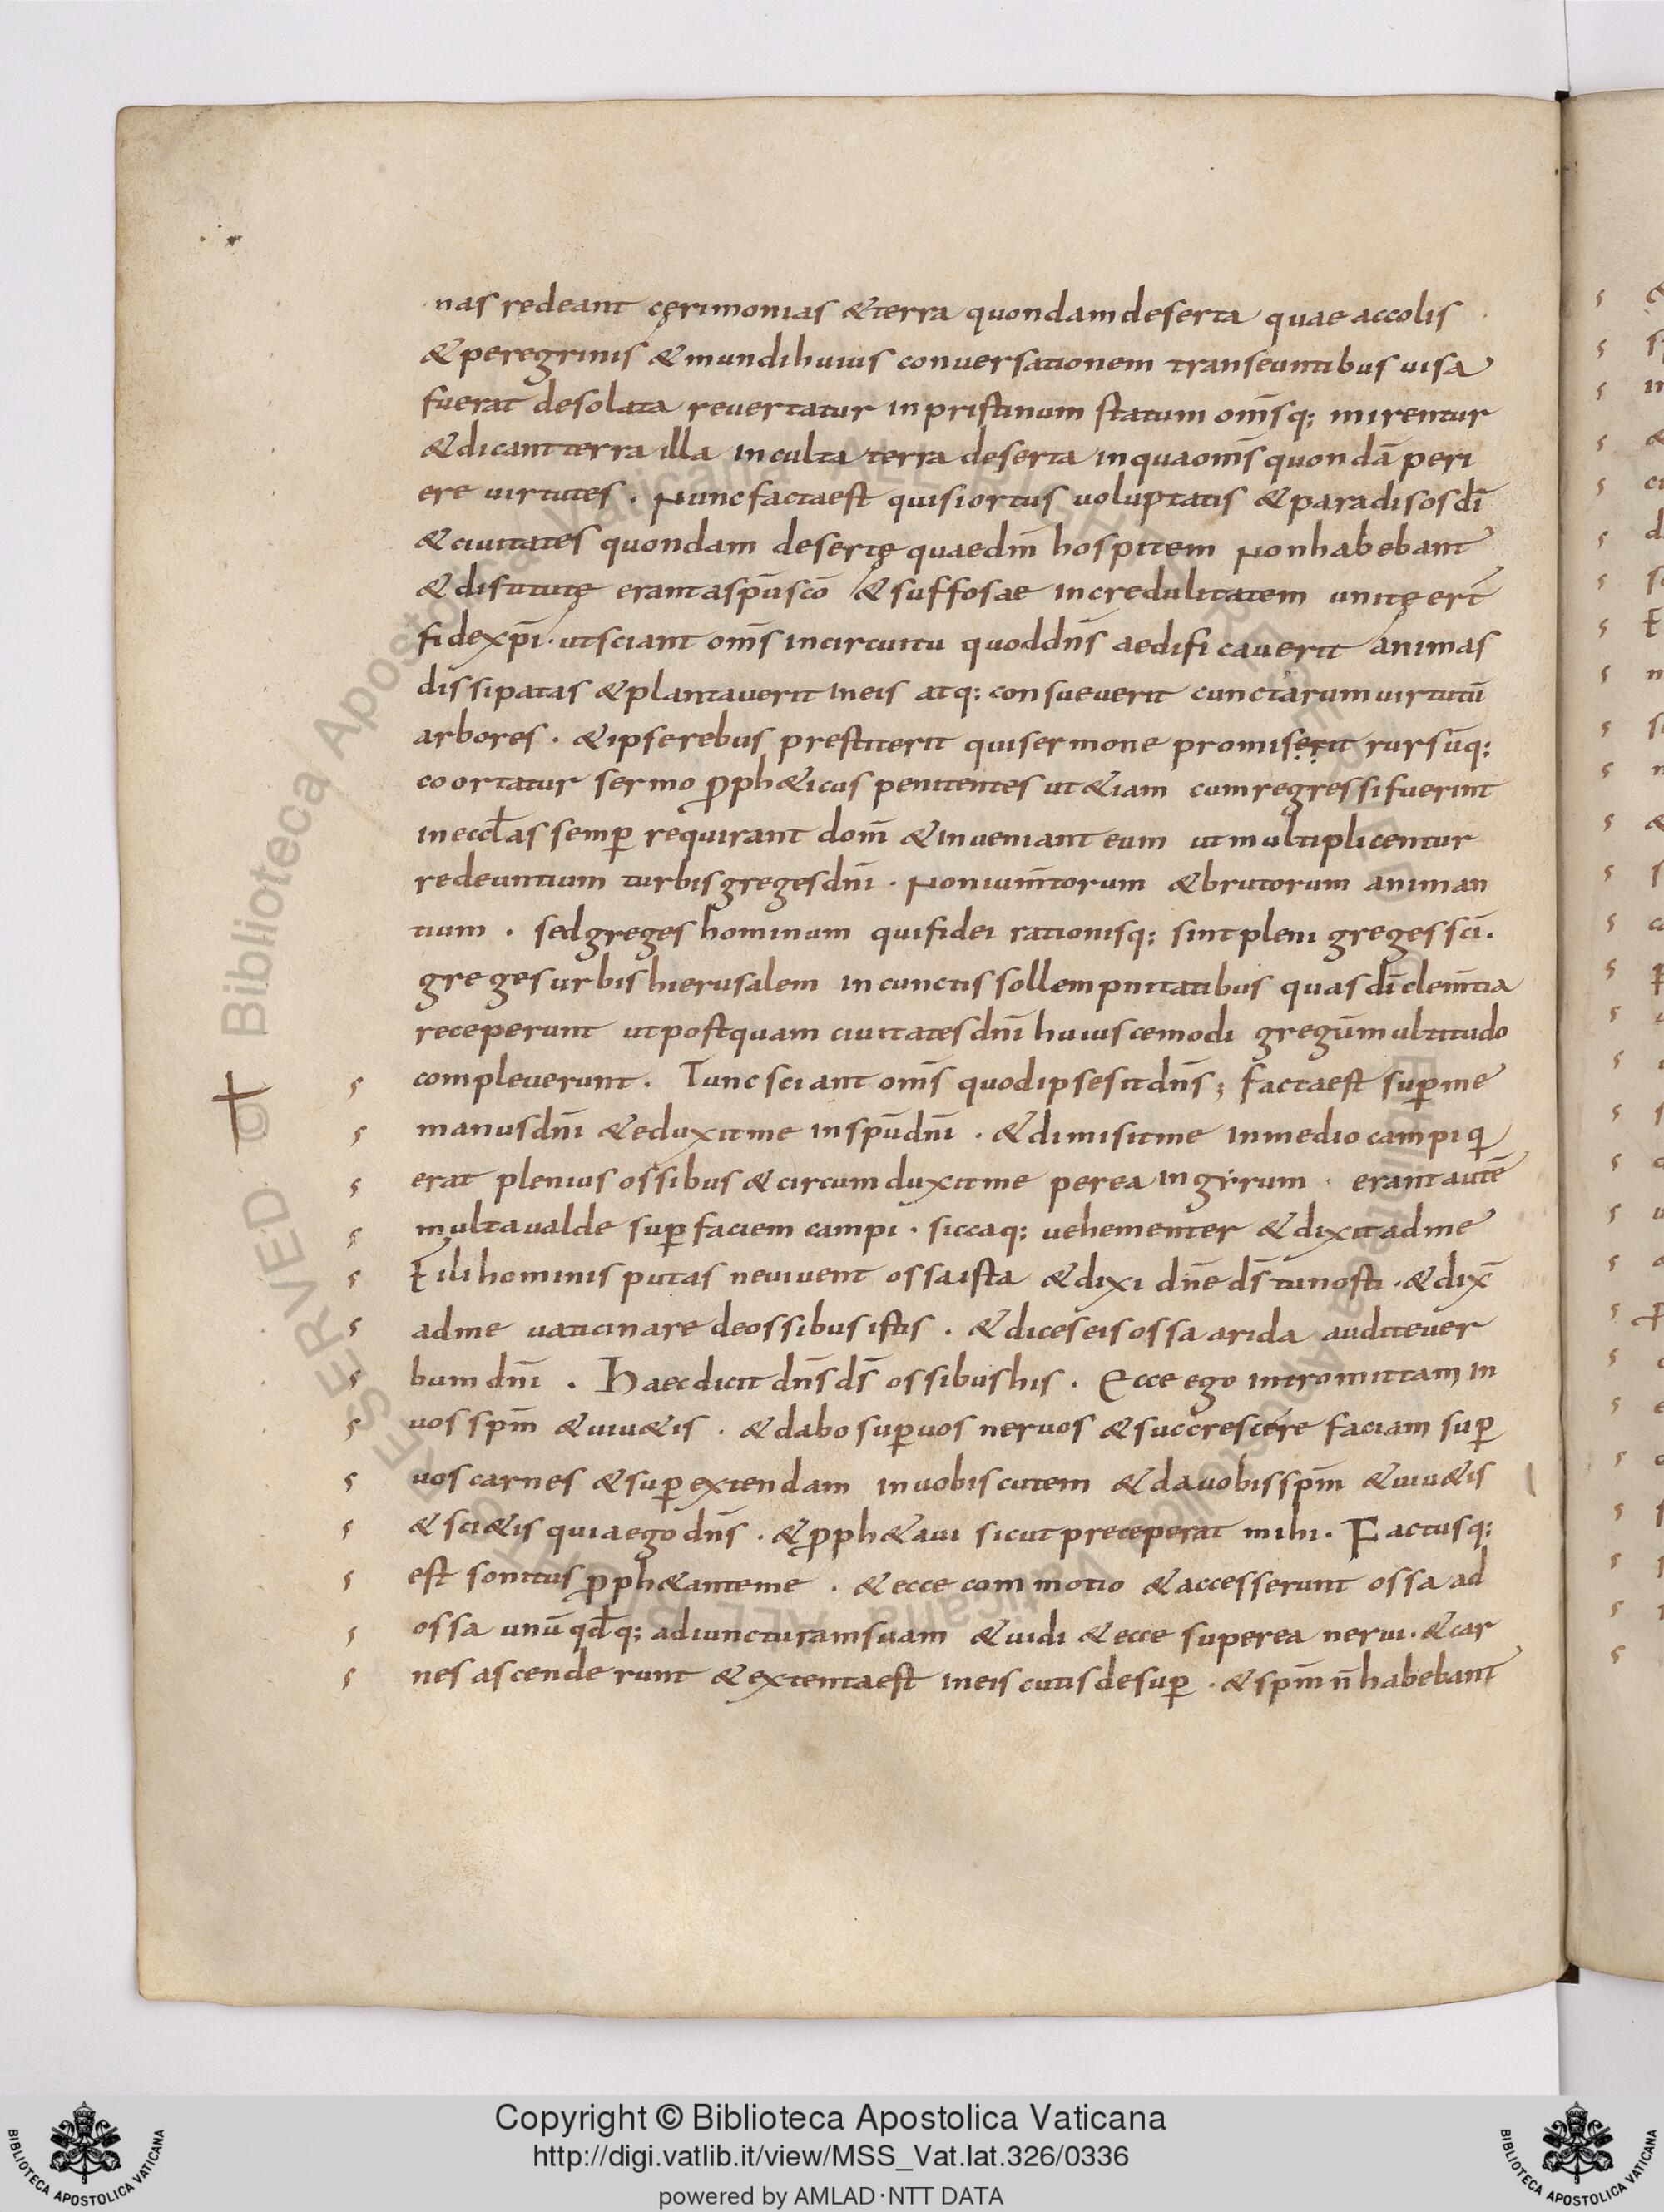 nas redeant cęrimonias & terra quondam deserta quae accolis
& peregrinis & mundi huius conuersationem transeuntibus uisa
fuerat desolata reuertatur in pristinum statum om̅sq; mirentur
& dicant terra illa inculta terra deserta in qua om̅s quondā peri
ere uirtutes . Nunc facta est quasi ortus uoluptatis & paradisos dī
& ciuitates quondam desertę quae dn̄m hospitem non habebant
& distitutę erant a spū scō & suffosae incredulitatem unitę ert̄
fide xp̄i . ut sciant om̅s in circuitu quod dn̄s aedificauerit animas
dissipatas & plantauerit in eis atq; consueuerit cunctarum uirtutū
arbores . & ipse rebus prestiterit qui sermone promiserit rursūq;
coortatur sermo ꝓph&icus penitentes ut &iam cum regressi fuerint
in eccl̄as semꝑ requirant dom̄ & inueniant eum ut multiplicentur
redeuntium turbis greges dn̄i . Non ium̅torum & brutorum animan
tium . sed greges hominum qui fidei rationisq; sint pleni greges sc̄i .
greges urbis hierusalem in cunctis sollempnitatibus quas dī clem̅tia
receperunt ut postquam ciuitates dn̄i huiuscemodi gregū multitudo
compleuerunt . Tunc sciant om̅s quod ipse sit dn̄s ; facta est suꝑ me
manus dn̄i & eduxit me in spū dn̄i . & dimisit me in medio campi q
erat plenius ossibus & circumduxit me per ea in gyrum . erant autē
multa ualde suꝑ faciem campi . siccaq; uehementer & dixit ad me
Fili hominis putasne uiuent ossa ista & dixi dn̄e ds̄ tu nosti . & dix̄
ad me uaticinare de ossibus istis . & dices eis ossa arida audite uer
bum dn̄i . Haec dicit dn̄s ds̄ ossibus his . Ecce ego intromittam in
uos spm̄ & uiu&is . & dabo suꝑ uos neruos & succrescere faciam suꝑ
uos carnes & suꝑextendam in uobis cutem & da uobis spm̄ & uiu&is
& sci&is quia ego dn̄s . & ꝓph&aui sicut preceperat mihi . Factusq;
est sonitus ꝓph&ante me . & ecce commotio & accesserunt ossa ad
ossa unū qd̄q; ad iuncturam suam & uidi & ecce super ea nerui . & car
nes ascenderunt & extenta est in eis cutis desuꝑ . & spm̄ n̄ habebant
Copyright © Biblioteca Apostolica Vaticana
http://digi.vatlib.it/view/MSS_Vat.lat.326/0336
powered by AMLAD·NTT DATA
BIBLIOTECA APOSTOLICA VATICANA
BIBLIOTECA APOSTOLICA VATICANA